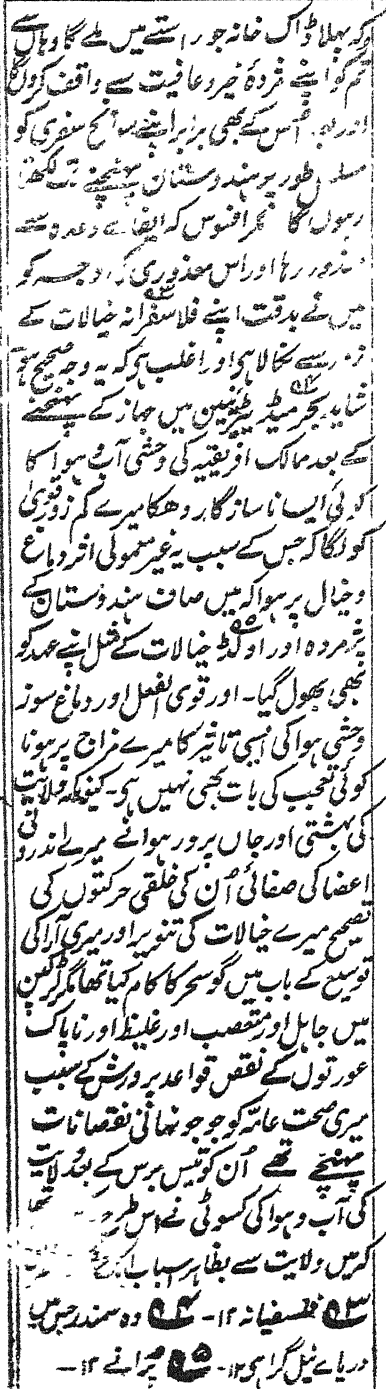 کہ پہلا ڈاک خانہ جو راستے میں ملے گا وہاں سے
تم کو اپنے مژدۂ خیر و عافیت سے واقف کروں گا
اور بعد اُس کے بھی برابر اپنے سوانح سفری کو
مسلسل طور پر ہندوستان پہنچنے تک لکھتا
رہوں گا مگر افسوس کہ ایفاے وعدہ سے
معذور رہا اور اس معذوری کی وجہ کو
میں نے بدقت اپنے فلاسفرانہ ۵۳ خیالات کے
زور سے نکالا ہی اور اغلب ہی کہ یہ وجہ صحیح ہو
شاید بحر میڈیٹرینین ۵۴ میں جہاز کے پہنچنے
کے بعد ممالک افریقیہ کی وحشی آب و ہوا کا
کوئی ایسا ناسازگار دھکا میرے کم زور قویٰ
کو لگا کہ جس کے سبب یہ غیر معمولی اثر دماغ
و خیال پر ہوا کہ میں صاف ہندوستان کے
پژمردہ اور اولڈ ۵۵ خیالات کے مثل اپنے عہد کو
بھی بھول گیا۔ اور قوی الفعل اور دماغ سوز
وحشی ہوا کی ایسی تاثیر کا میرے مزاج پر ہونا
کوئی تعجب کی بات بھی نہیں ہی۔ کیونکہ ولایت
کی بہشتی اور جاں پرور ہوا نے میرے اندرونی
اعضا کی صفائی اُن کی خلقی حرکتوں کی
تصحیح میرے خیالات کی تنویر اور میری آرا کی
توسیع کے باب میں گو سحر کا کام کیا تھا مگر لڑکپن
میں جاہل اور متعصب اور غلیظ اور ناپاک
عورتوں کے نقص قواعد پرورش کے سبب
میری صحت عامہ کو جو جو نہانی نقصانات
پہنچے تھے اُن کو تیس برس کے بعد ولایت
کی آب و ہوا کی کسوٹی نے اس طرح
کہ میں ولایت سے بظاہر اسباب
۵۳ فلسفیانہ ۱۲۔ ۵۴ وہ سمندر جس میں
دریاے نیل گرا ہی ۱۲۔ ۵۵ پرانے ۱۲۔